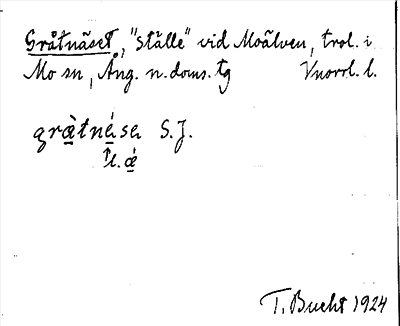 Gråtnäset, "ställe" vid Moälven, trol. i
Mo sn, Ång. n. doms. tg Vnorrl. l.
græ̀tnése S.J.
tl. ǽ
T. Bucht 1924